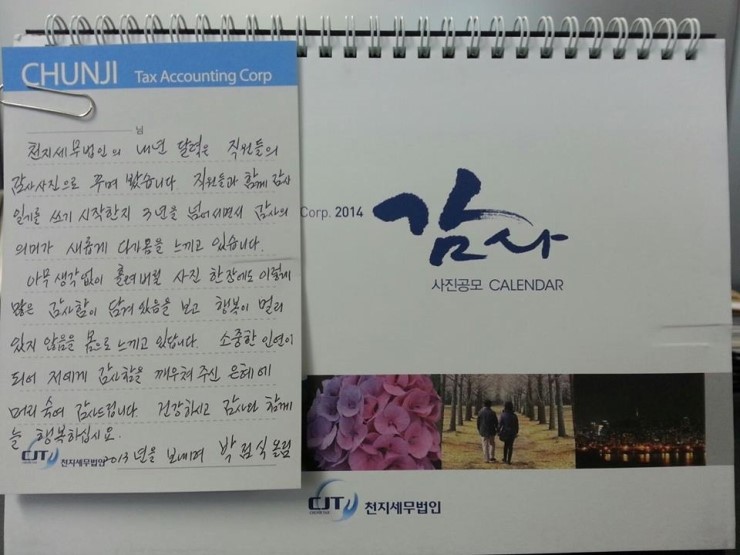 CHUNJI Tax Accounting Corp
님
천지세무법인의 내년 달력은 직원들의
감사사진으로 꾸며 봤습니다. 직원들과 함께 감사
일기를 쓰기 시작한지 3년을 넘어서면서 감사의
의미가 새롭게 다가옴을 느끼고 있습니다.
아무 생각없이 흘려버릴 사진 한장에도 이렇게
많은 감사함이 담겨 있음을 보고 행복이 멀리
있지 않음을 몸으로 느끼고 있답니다. 소중한 인연이
되어 저에게 감사함을 깨우쳐 주신 은혜에
머리 숙여 감사드립니다. 건강하시고 감사와 함께
늘 행복하십시요.
2013년을 보내며 박점식 올림
CJT 천지세무법인
Corp. 2014
감사
사진공모 CALENDAR
CJT 천지세무법인